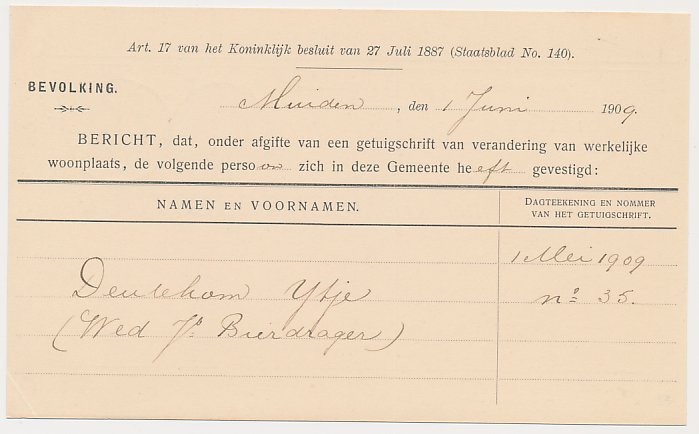 Art. 17 van het Koninklijk besluit van 27 Juli 1887 (Staatsblad No. 140).
BEVOLKING.
Muiden, den 1 Juni 1909.
BERICHT, dat, onder afgifte van een getuigschrift van verandering van werkelijke
woonplaats, de volgende persoon zich in deze Gemeente heeft gevestigd:
NAMEN EN VOORNAMEN.
DAGTEEKENING EN NOMMER
VAN HET GETUIGSCHRIFT.
1 Mei 1909
Deutekom Ytje
no 35.
(Wed Jb Bierdrager)